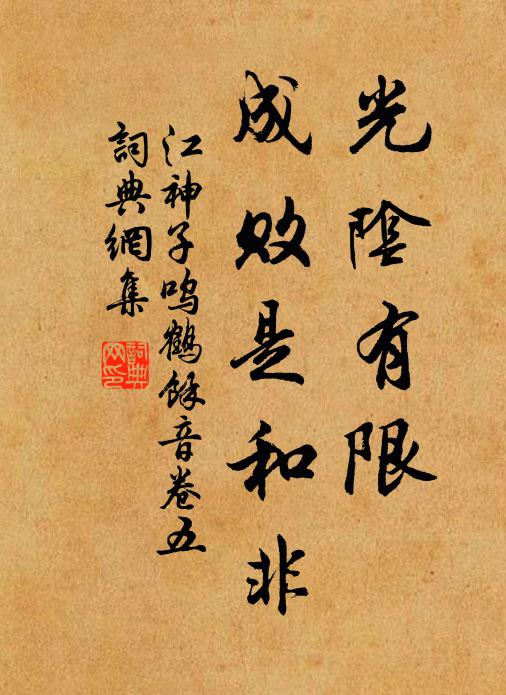 光陰有限
成敗是和非
江神子鳴鶴餘音卷五
詞典網集
詞典網印